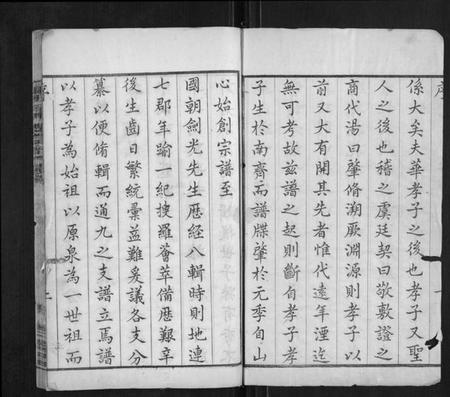 序
係大矣夫華孝子之後也孝子又聖
人之後也稽之虞廷契曰敬敷證之
商代湯曰肇脩溯厥淵源則孝子以
前又大有開其先者惟代遠年湮迄
無可考故茲譜之起則斷自孝子孝
子生於南齊而譜牒肇於元季自山
心始創宗譜至
國朝劍光先生歷經八輯時則地連
七郡年踰一紀搜羅薈萃備歷艱辛
後生齒日繁統彙益難爰議各支分
纂以便脩輯而通九之支譜立焉譜
以孝子為始祖以原泉為一世祖而